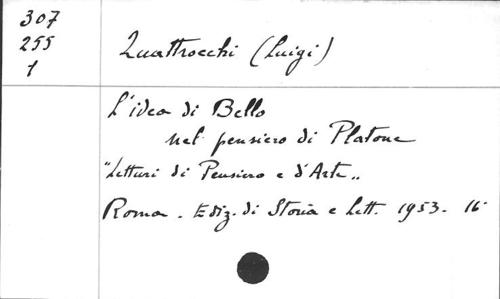 307
255
1
Quattrocchi (Luigi)
L'idea di Bello
nel pensiero di Platone
"Letture di Pensiero e d'Arte„
Roma. Ediz. di Storia e Lett. 1953. 16°